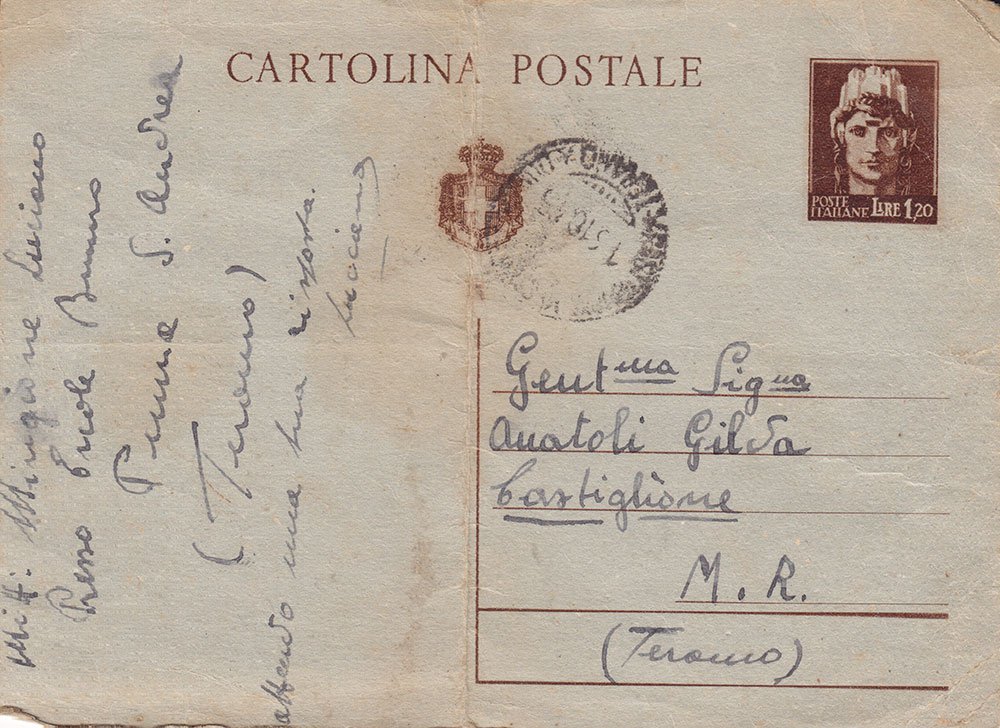 CARTOLINA POSTALE
POSTE
ITALIANE LIRE 1,20
Gent.ma Sig.na
Anatoli Gilda
Castiglione
M. R.
(Teramo)
Mitt: Mingione Luciano
Presso Ercole Bruno
Penna S. Andrea
(Teramo)
attendo una tua risposta.
Luciano